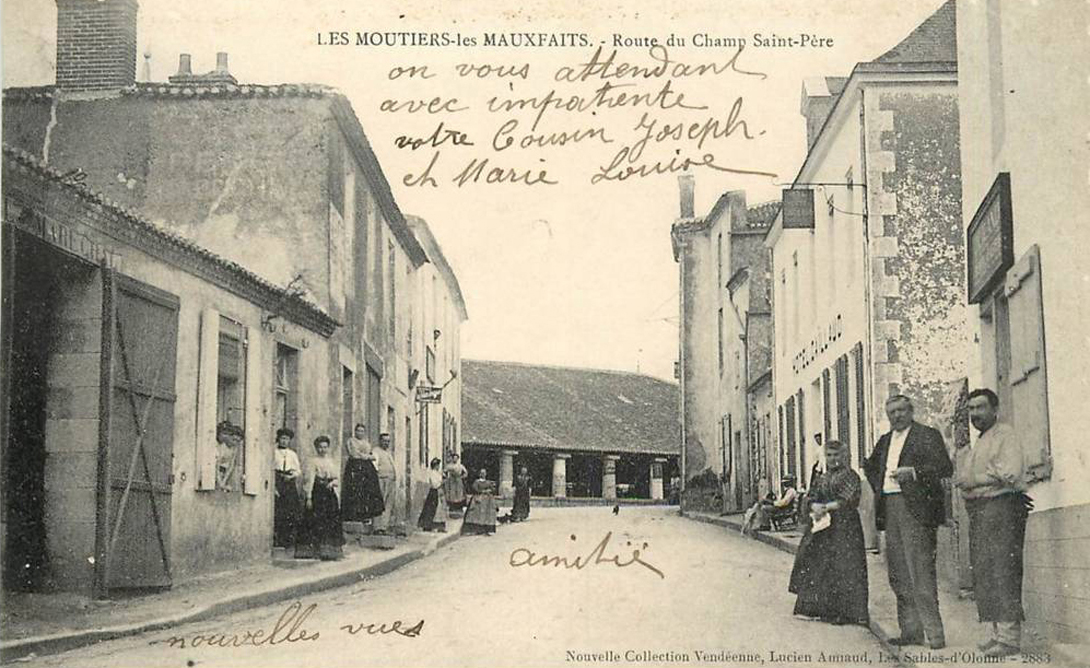 LES MOUTIERS-les MAUXFAITS. - Route du Champ Saint-Père
on vous attendant
avec impatiente
votre Cousin Joseph.
et Marie Louise
HOTEL GAILLAUD
amitié
nouvelles vues
Nouvelle Collection Vendéenne, Lucien Amiaud, Les Sables-d'Olonne - 2883